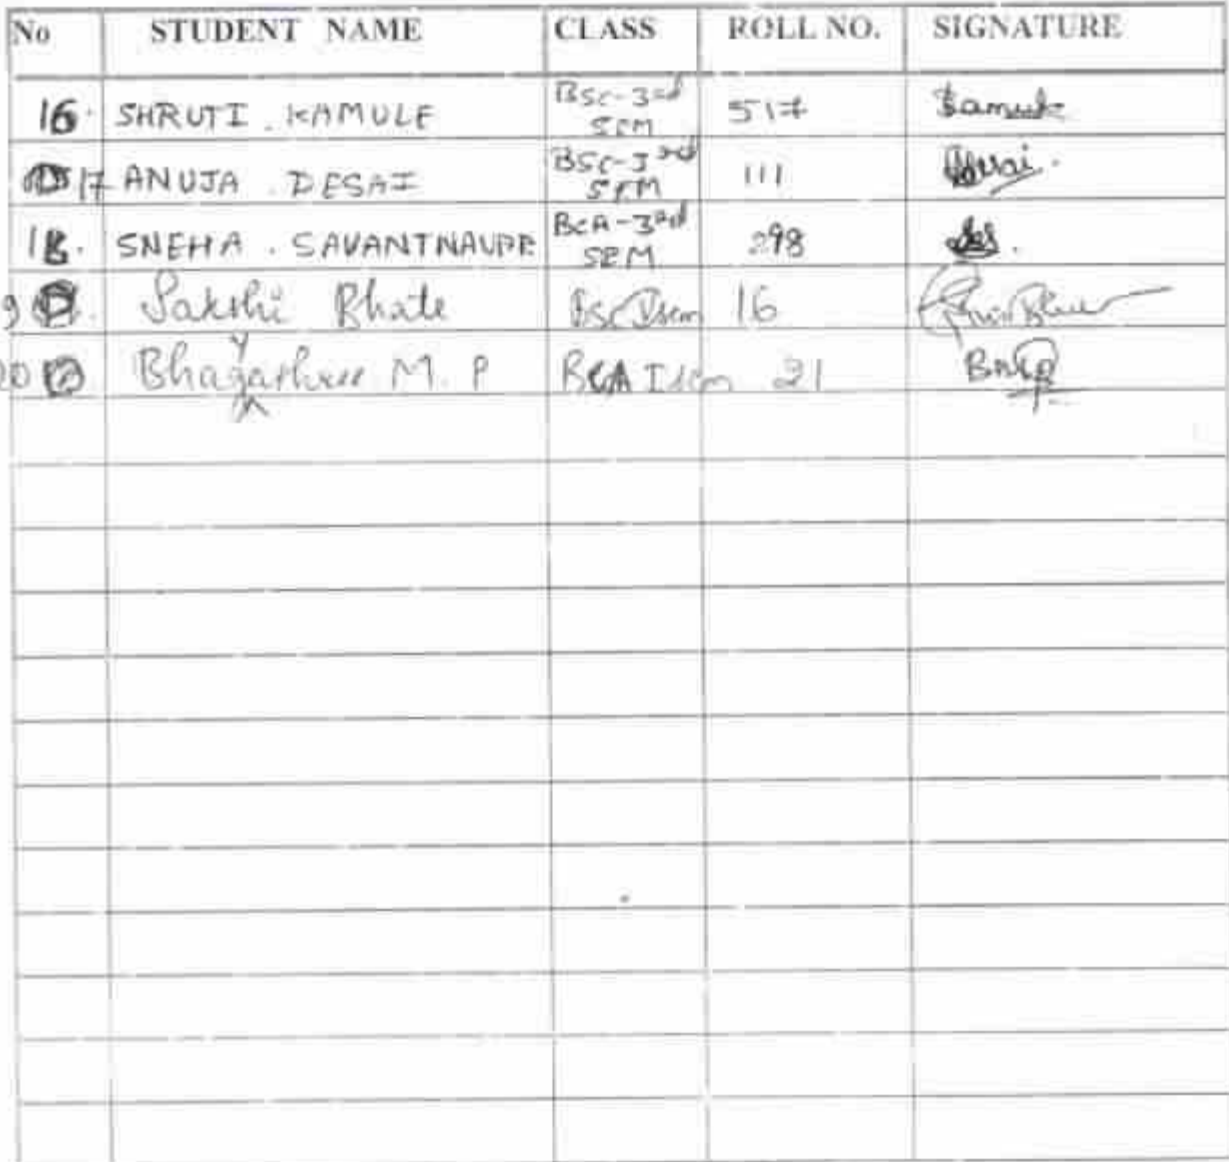 No STUDENT NAME CLASS ROLL NO. SIGNATURE
16. SHRUTI . KAMULE BSC-3rd SEM 517 Kamule
17 ANUJA . DESAI BSC-3rd SEM 111 Desai.
18. SNEHA . SAVANTNAVRE BCA-3rd SEM 298
9 Sakshi Bhate Bsc I sem 16
20 Bhagyashree M. P BCA I sem 21